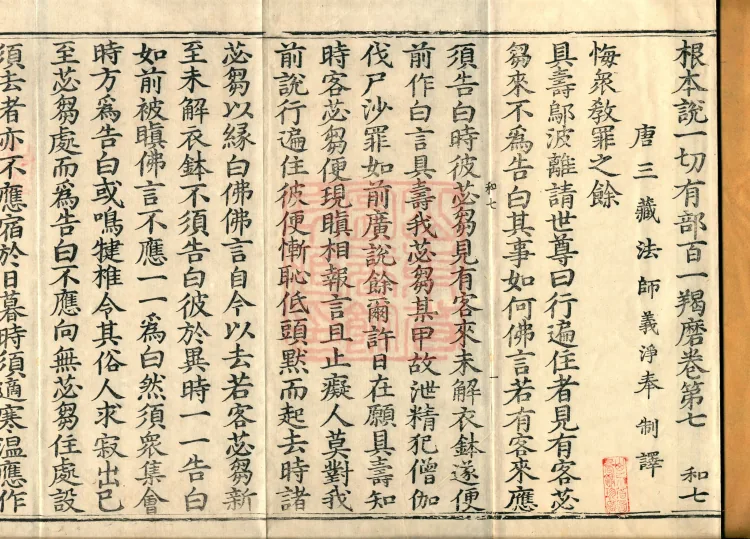 根本說一切有部百一羯磨卷第七 和七
唐三藏法師義淨奉 制譯
悔衆教罪之餘
具壽鄔波離請世尊曰行遍住者見有客苾
芻來不爲告白其事如何佛言若有客來應
須告白時彼苾芻見有客來未解衣鉢遂便
和七
前作白言具壽我苾芻某甲故泄精犯僧伽
伐尸沙罪如前廣說餘爾許日在願具壽知
時客苾芻便現瞋相報言且止癡人莫對我
前說行遍住彼便慚恥低頭默而起去時諸
苾芻以緣白佛佛言自今以去若客苾芻新
至未解衣鉢不須告白彼於異時一一告白
如前被瞋佛言不應一一爲白然須衆集會
時方爲告白或鳴犍椎令其俗人求寂出已
至苾芻處而爲告白不應向無苾芻住處設
須去者亦不應宿於日暮時須適寒温應作